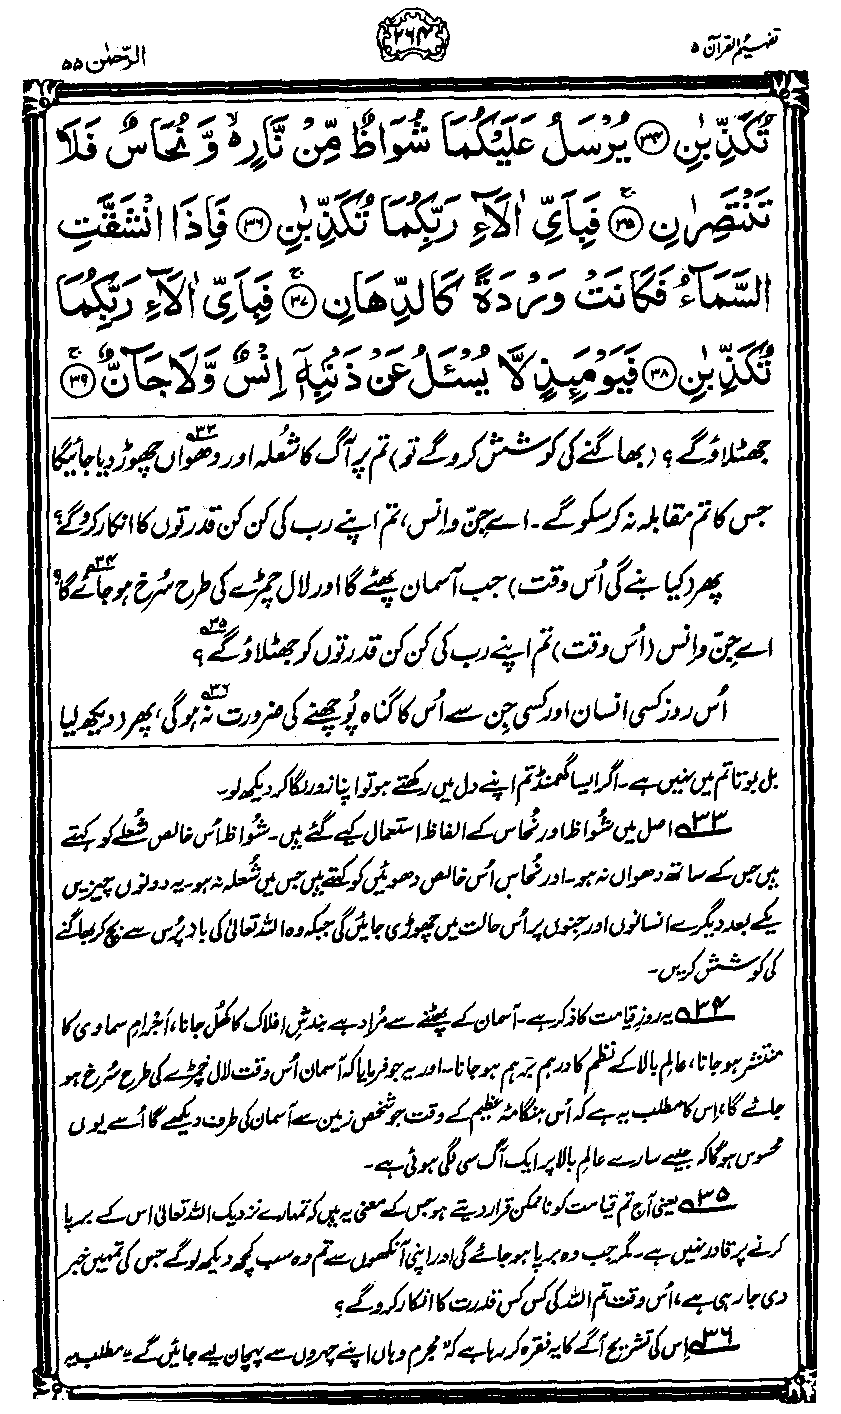 تفہیم القرآن ۵
۲۶۴
الرّحمٰن ۵۵
تُكَذِّبٰنِ ۳۴ يُرْسَلُ عَلَيْكُمَا شُوَاظٌ مِّنْ نَّارٍ ۙ وَّ نُحَاسٌ فَلَا
تَنْتَصِرٰنِ ۳۵ فَبِاَيِّ اٰلَآءِ رَبِّكُمَا تُكَذِّبٰنِ ۳۶ فَاِذَا انْشَقَّتِ
السَّمَآءُ فَكَانَتْ وَرْدَةً كَالدِّهَانِ ۳۷ فَبِاَيِّ اٰلَآءِ رَبِّكُمَا
تُكَذِّبٰنِ ۳۸ فَيَوْمَىِٕذٍ لَّا يُسْـَٔلُ عَنْ ذَنْۢبِهٖٓ اِنْسٌ وَّلَا جَآنٌّ ۳۹
جھٹلاؤ گے ؟ (بھاگنے کی کوشش کرو گے تو) تم پر آگ کا شعلہ اور دھواں۳۳ چھوڑ دیا جائیگا
جس کا تم مقابلہ نہ کر سکو گے۔ اے جِنّ و اِنس، تم اپنے رب کی کن کن قدرتوں کا انکار کرو گے؟
پھر (کیا بنے گی اُس وقت) جب آسمان پھٹے گا اور لال چمڑے کی طرح سُرخ ہو جائے گا۳۴؟
اے جِنّ و انس (اُس وقت) تم اپنے رب کی کن کن قدرتوں کو جھٹلاؤ گے۳۵ ؟
اُس روز کسی انسان اور کسی جِن سے اُس کا گناہ پُوچھنے کی ضرورت نہ ہوگی۳۶، پھر (دیکھ لیا
بل بوتا تم میں نہیں ہے۔ اگر ایسا گھمنڈ تم اپنے دل میں رکھتے ہو تو اپنا زور لگا کر دیکھ لو۔
۳۳ اصل میں شُواظ اور نُحاس کے الفاظ استعمال کیے گئے ہیں۔ شُواظ اُس خالص شُعلے کو کہتے
ہیں جس کے ساتھ دھواں نہ ہو۔ اور نُحاس اُس خالص دھوئیں کو کہتے ہیں جس میں شُعلہ نہ ہو۔ یہ دونوں چیزیں
یکے بعد دیگرے انسانوں اور جنوں پر اُس حالت میں چھوڑی جائیں گی جبکہ وہ اللہ تعالیٰ کی باز پُرس سے بچ کر بھاگنے
کی کوشش کریں۔
۳۴ یہ روزِ قیامت کا ذکر ہے۔ آسمان کے پھٹنے سے مُراد ہے بندشِ افلاک کا کھُل جانا، اَجرامِ سماوی کا
منتشر ہو جانا، عالمِ بالا کے نظم کا درہم برہم ہو جانا۔ اور یہ جو فرمایا کہ آسمان اُس وقت لال چمڑے کی طرح سُرخ ہو
جائے گا، اِس کا مطلب یہ ہے کہ اُس ہنگامۂ عظیم کے وقت جو شخص زمین سے آسمان کی طرف دیکھے گا اُسے یوں
محسوس ہوگا کہ جیسے سارے عالمِ بالا پر ایک آگ سی لگی ہوئی ہے۔
۳۵ یعنی آج تم قیامت کو ناممکن قرار دیتے ہو جس کے معنی یہ ہیں کہ تمہارے نزدیک اللہ تعالیٰ اس کے برپا
کرنے پر قادر نہیں ہے۔ مگر جب وہ برپا ہو جائے گی اور اپنی آنکھوں سے تم وہ سب کچھ دیکھ لو گے جس کی تمہیں خبر
دی جا رہی ہے، اُس وقت تم اللہ کی کس کس قدرت کا انکار کرو گے؟
۳۶ اِس کی تشریح آگے کا یہ فقرہ کر رہا ہے کہ "مجرم وہاں اپنے چہروں سے پہچان لیے جائیں گے" مطلب یہ